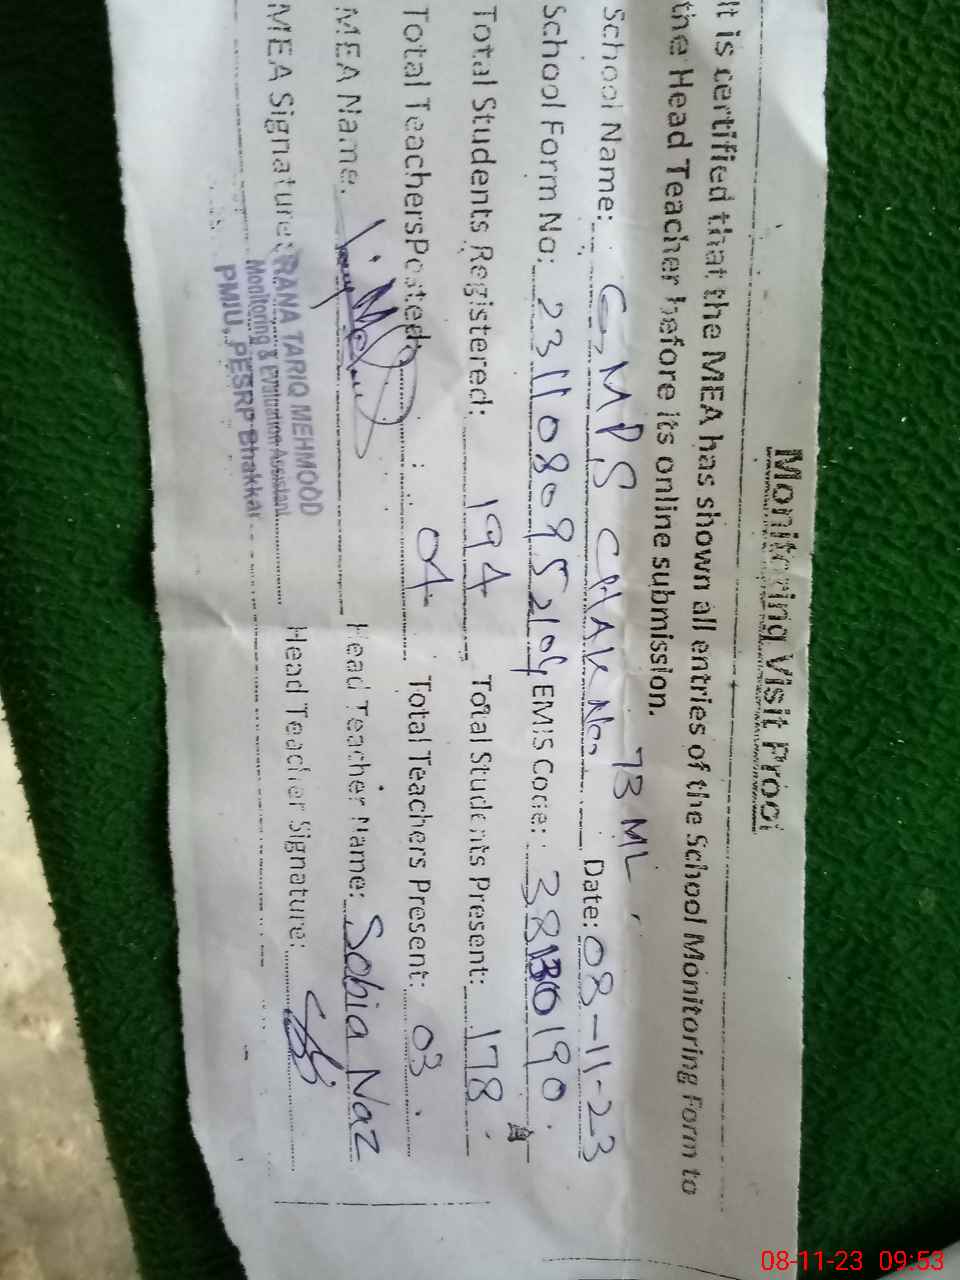 Monitoring Visit Proof
It is certified that the MEA has shown all entries of the School Monitoring Form to
the Head Teacher before its online submission.
School Name: GMPS CHAK No. 73 ML Date: 08-11-23
School Form No: EMIS Code:
Total Students Registered: 194 Total Students Present: 178
Total Teachers Posted: 04 Total Teachers Present: 03
MEA Name: Head Teacher Name: Sobia Naz
MEA Signature: Head Teacher Signature:
RANA TARIQ MEHMOOD
Monitoring & Evaluation Assistant
PMIU, PESRP Bhakkar
08-11-23 09:53